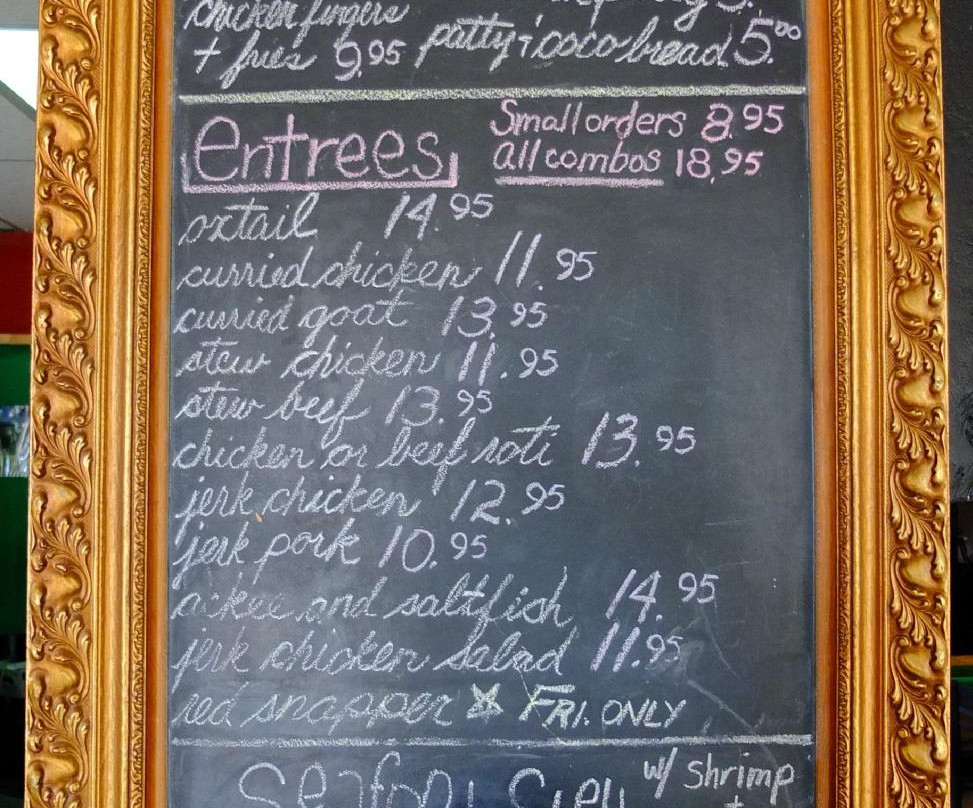 chicken fingers
+ fries 9.95 patty + coco bread 5.00
Entrees Small orders 8.95
all combos 18.95
oxtail 14.95
curried chicken 11.95
curried goat 13.95
stew chicken 11.95
stew beef 13.95
chicken or beef roti 13.95
jerk chicken 12.95
jerk pork 10.95
ackee and saltfish 14.95
jerk chicken Salad 11.95
red snapper FRI. ONLY
w/ Shrimp